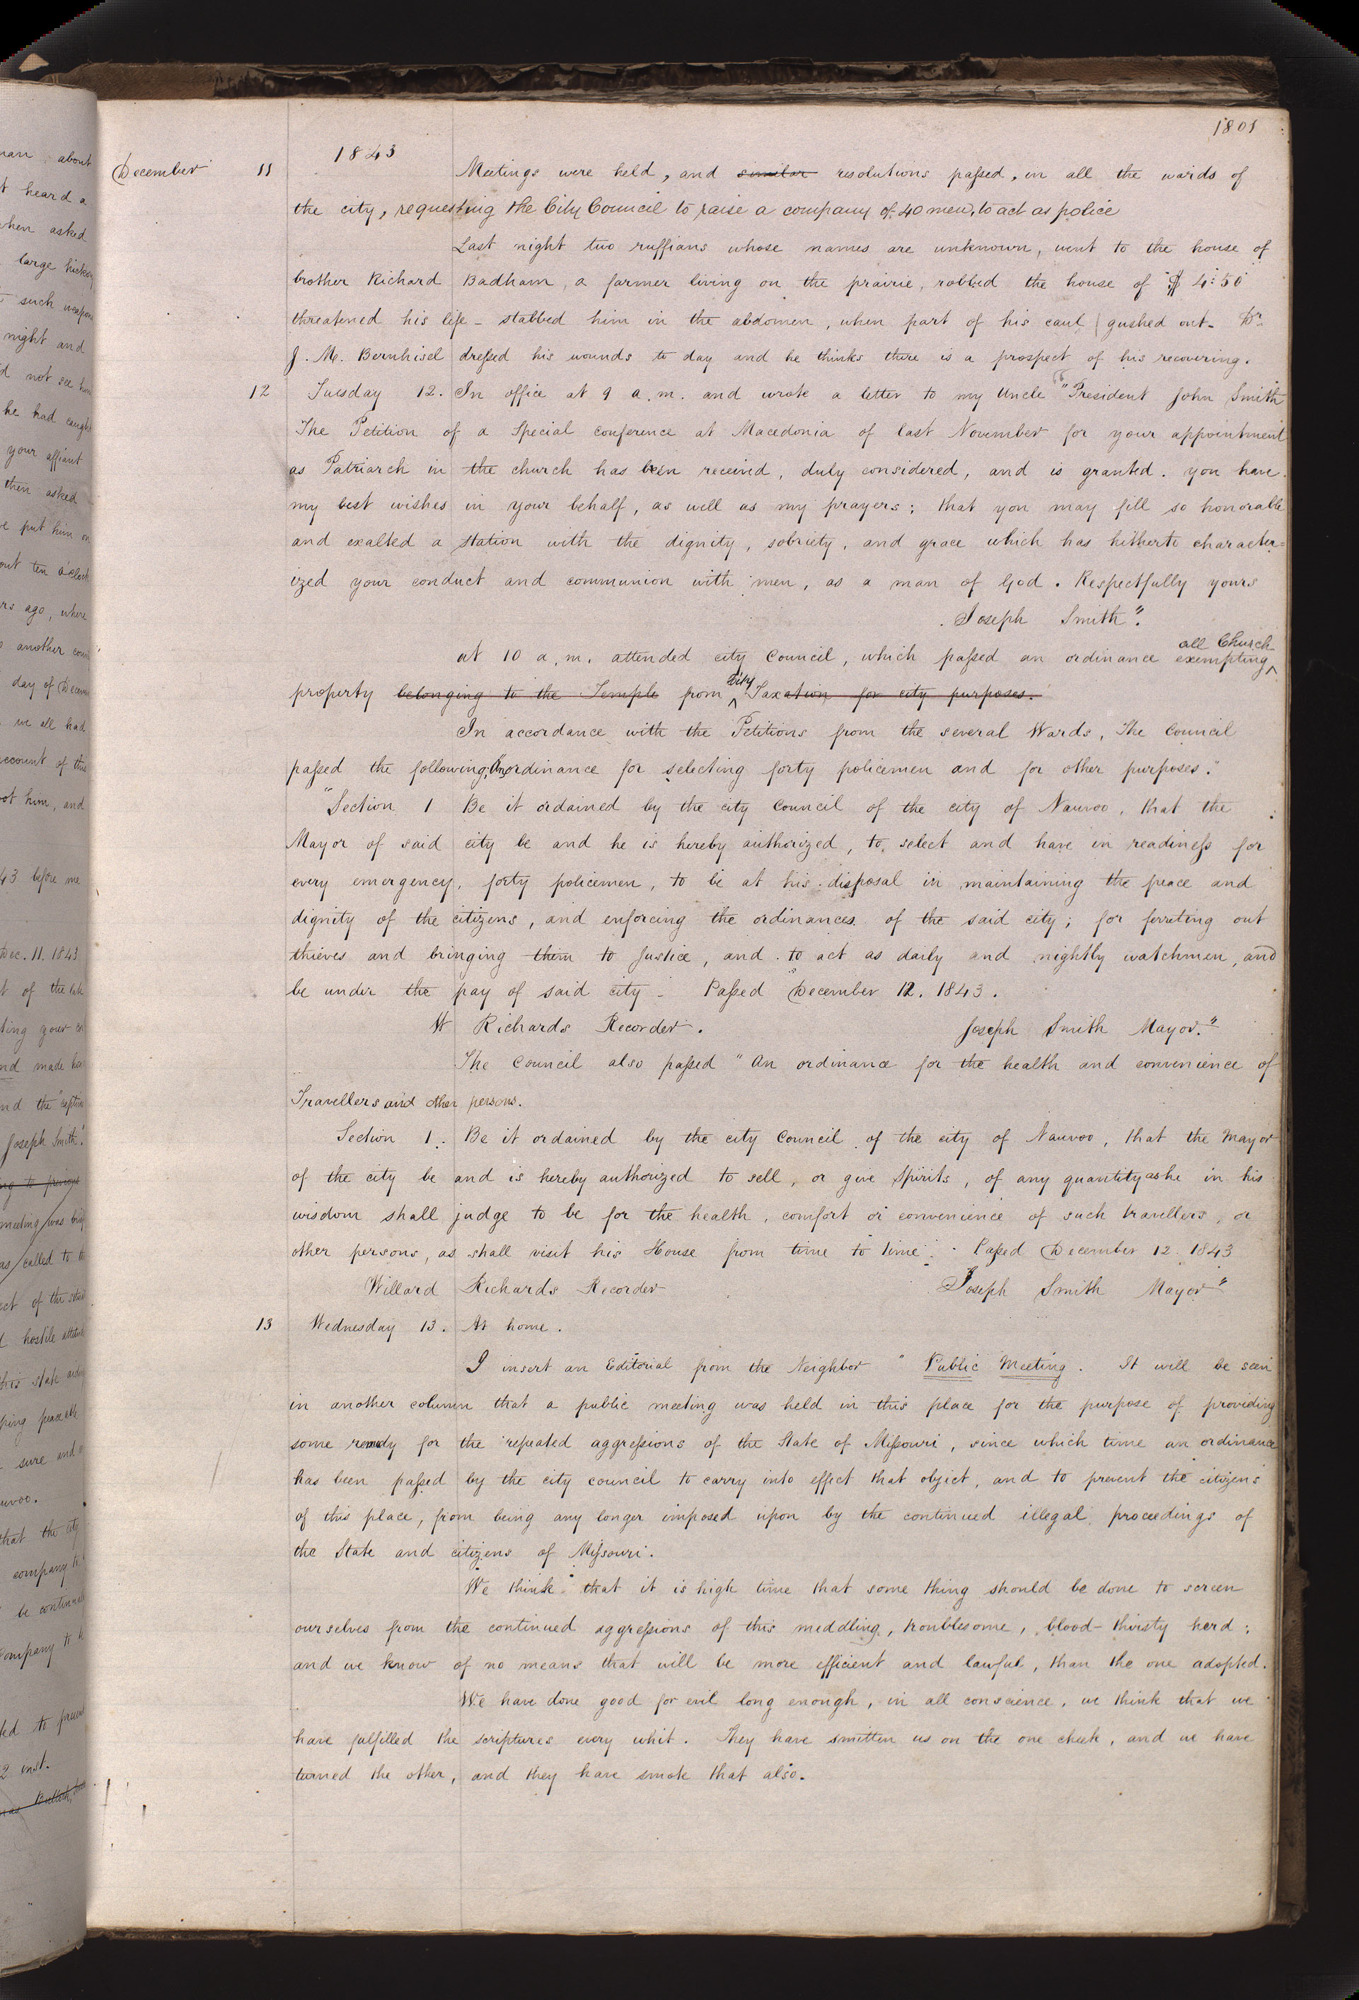 1801
1843
December 11 Meetings were held, and similar resolutions passed, in all the wards of
the city, requesting the City Council to raise a company of 40 men, to act as police
Last night two ruffians whose names are unknown, went to the house of
brother Richard Badham, a farmer living on the prairie, robbed the house of $4:50
threatened his life - stabbed him in the abdomen, when part of his caul gushed out - Dr.
J. M. Bernhisel dressed his wounds to day and he thinks there is a prospect of his recovering.
12 Tuesday 12. In office at 9 a.m. and wrote a letter to my Uncle "President John Smith
The Petition of a special conference at Macedonia of last November for your appointment
as Patriarch in the church has been received, duly considered, and is granted. you have
my best wishes in your behalf, as well as my prayers; that you may fill so honorable
and exalted a station with the dignity, sobriety, and grace which has hitherto character=
ized your conduct and communion with men, as a man of God. Respectfully yours
Joseph Smith".
all Church
at 10 a.m. attended city council, which passed an ordinance exempting ^
City
property belonging to the Temple from ^ Taxation for city purposes.
In accordance with the Petitions from the several Wards, The Council
passed the following "An ordinance for selecting forty policemen and for other purposes."
"Section 1 Be it ordained by the city council of the city of Nauvoo, that the
Mayor of said city be and he is hereby authorized, to select and have in readiness for
every emergency, forty policemen, to be at his disposal in maintaining the peace and
dignity of the citizens, and enforcing the ordinances of the said city; for ferreting out
thieves and bringing them to Justice, and to act as daily and nightly watchmen, and
be under the pay of said city - Passed December 12. 1843.
W Richards Recorder. Joseph Smith Mayor."
The Council also passed "An ordinance for the health and convenience of
Travellers and other persons.
Section 1. Be it ordained by the city Council of the city of Nauvoo, that the Mayor
of the city be and is hereby authorized to sell, or give Spirits, of any quantity as he in his
wisdom shall judge to be for the health, comfort or convenience of such travellers, or
other persons, as shall visit his House from time to time. Passed December 12 1843
Willard Richards Recorder Joseph Smith Mayor"
13 Wednesday 13. At home.
I insert an Editorial from the Neighbor "Public Meeting. It will be seen
in another column that a public meeting was held in this place for the purpose of providing
some remedy for the repeated aggressions of the State of Missouri, since which time an ordinance
has been passed by the city council to carry into effect that object, and to prevent the citizens
of this place, from being any longer imposed upon by the continued illegal proceedings of
the State and citizens of Missouri.
We think that it is high time that some thing should be done to screen
ourselves from the continued aggressions of this meddling, troublesome, blood-thirsty herd;
and we know of no means that will be more efficient and lawful, than the one adopted.
We have done good for evil long enough, in all conscience, we think that we
have fulfilled the scriptures every whit. They have smitten us on the one cheek, and we have
turned the other, and they have smote that also.